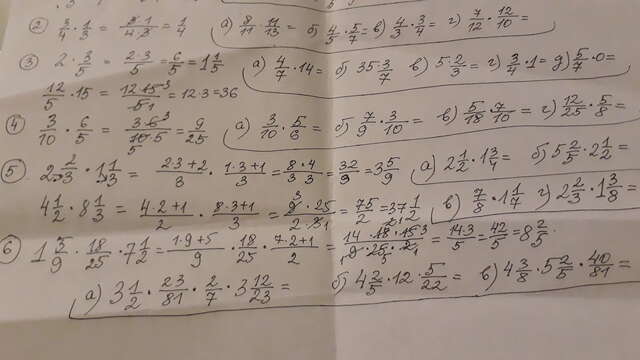 ② 3/4 · 1/3 = 3·1/4·3 = 1/4 а) 8/11 · 11/13 = б) 4/5 · 5/7 = в) 4/3 · 3/4 = г) 7/12 · 12/10 =
③ 2 · 3/5 = 2·3/5 = 6/5 = 1 1/5 а) 4/7 · 14 = б) 35 · 3/7 в) 5 · 2/3 = г) 3/4 · 1 = д) 5/7 · 0 =
12/5 · 15 = 12·15³/5₁ = 12·3 = 36
④ 3/10 · 6/5 = 3·6³/10₅·5 = 9/25 а) 3/10 · 5/6 = б) 7/9 · 3/10 = в) 5/18 · 7/10 = г) 12/25 · 5/8 =
⑤ 2 2/3 · 1 1/3 = 2·3+2/3 · 1·3+1/3 = 8·4/3·3 = 32/9 = 3 5/9 а) 2 1/2 · 1 3/4 = б) 5 2/5 · 2 1/2 =
4 1/2 · 8 1/3 = 4·2+1/2 · 8·3+1/3 = 9³·25/2·3₁ = 75/2 = 37 1/2 в) 7/8 · 1 1/7 г) 2 2/3 · 1 3/8 =
⑥ 1 5/9 · 18/25 · 7 1/2 = 1·9+5/9 · 18/25 · 7·2+1/2 = 14·18·15³/9·25₅·2₁ = 14·3/5 = 42/5 = 8 2/5.
а) 3 1/2 · 23/81 · 2/7 · 3 12/23 = б) 4 2/5 · 12 · 5/22 = в) 4 3/8 · 5 2/5 · 40/81 =